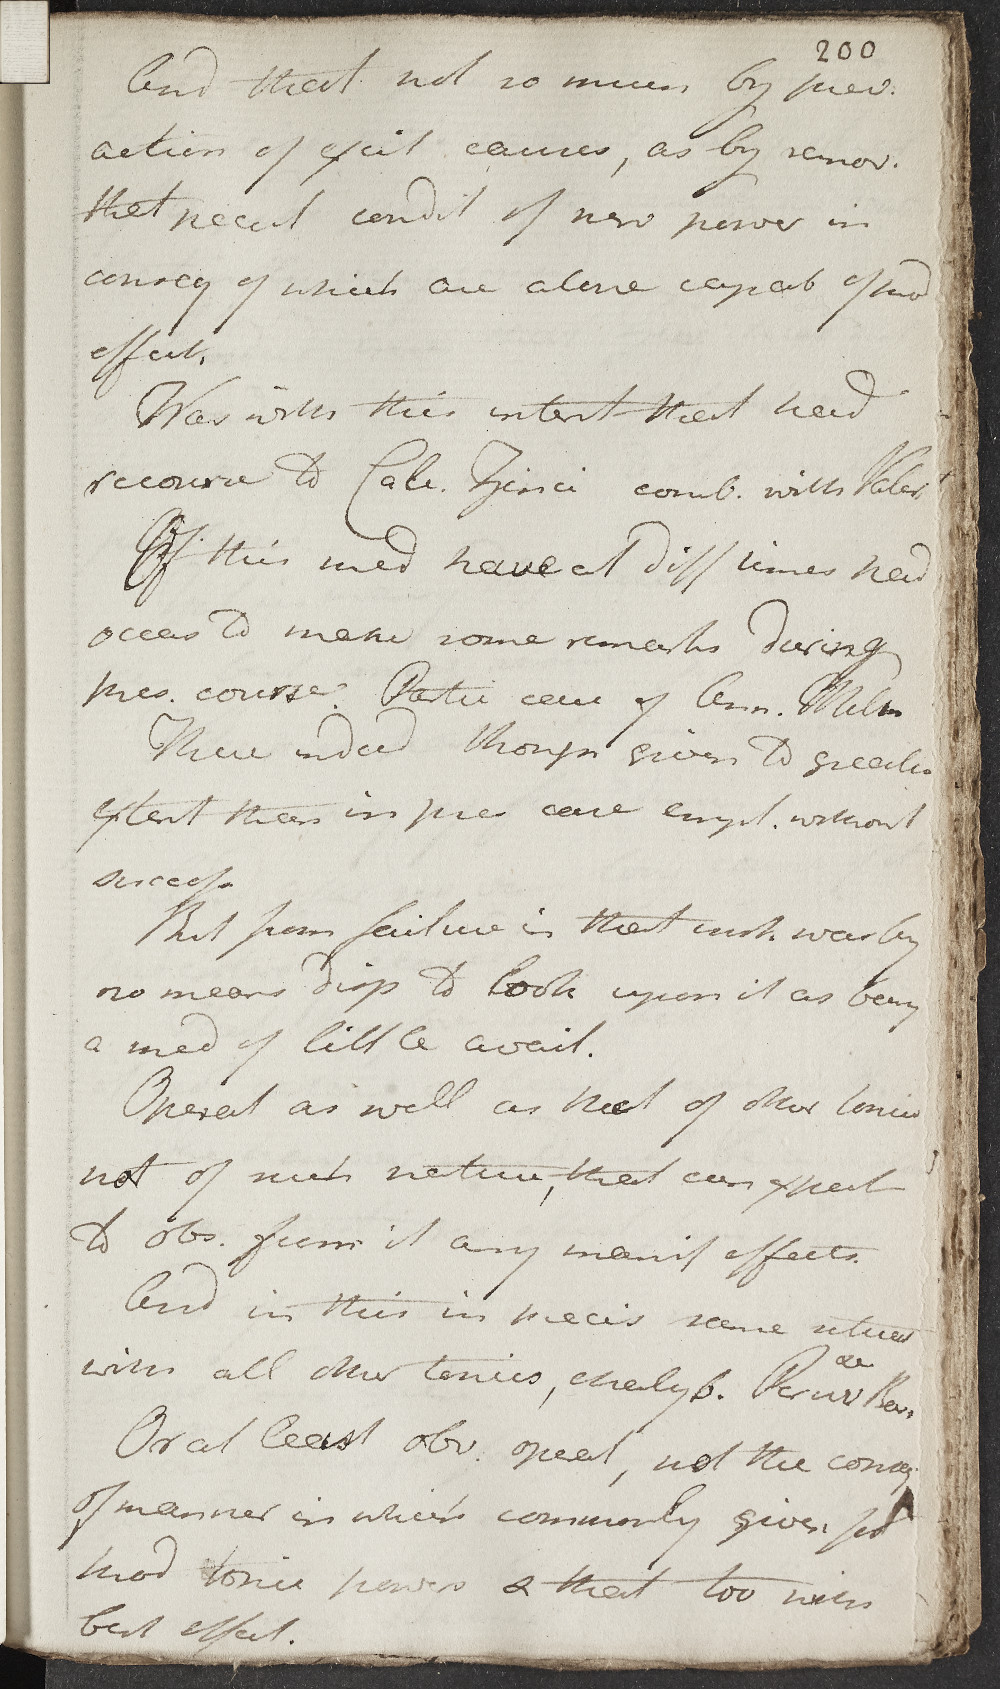 200
And that not so much by prev.
action of excit causes, as by remov.
that pecul condit of nerv power in
conseq of which are alone capab of prod
effect.
Was with this intent that had
recourse to Calc. Zinci comb. with Valer
Of this med have at diff times had
occas to make some remarks during
pres. course. Partic case of Ann. Miln
There indeed though given to greater
extent than in pres case empl. without
success.
But from failure in that inst. was by
no means disp to look upon it as being
a med of little avail.
Operat as well as that of other tonics
not of such nature, that can expect
to obs. from it any manif effects.
And in this in precis same situat
with all other tonics, chalyb. Peruv Bar. &c
Or at least obv. operat, not the conseq
of manner in which commonly given for
prod tonic powers & that too with
best effect.